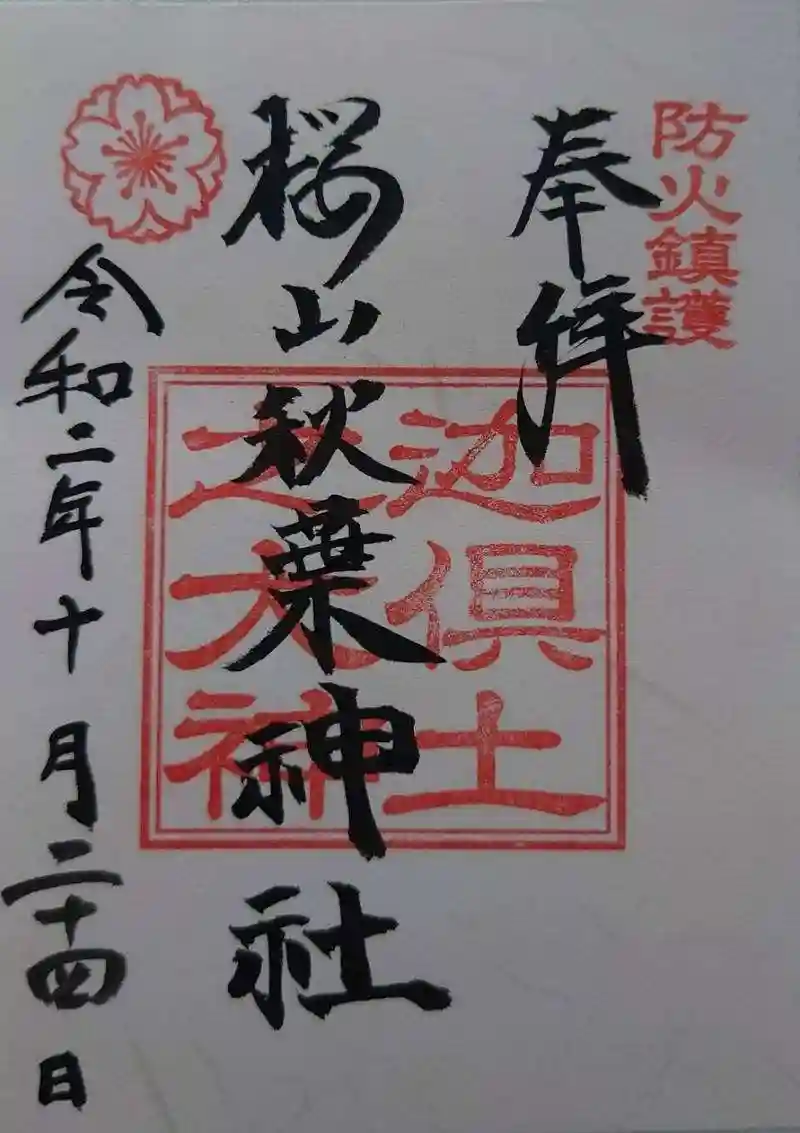 防火鎮護
奉拝
迦倶土
之大神
桜山秋葉神社
令和二年十月二十四日